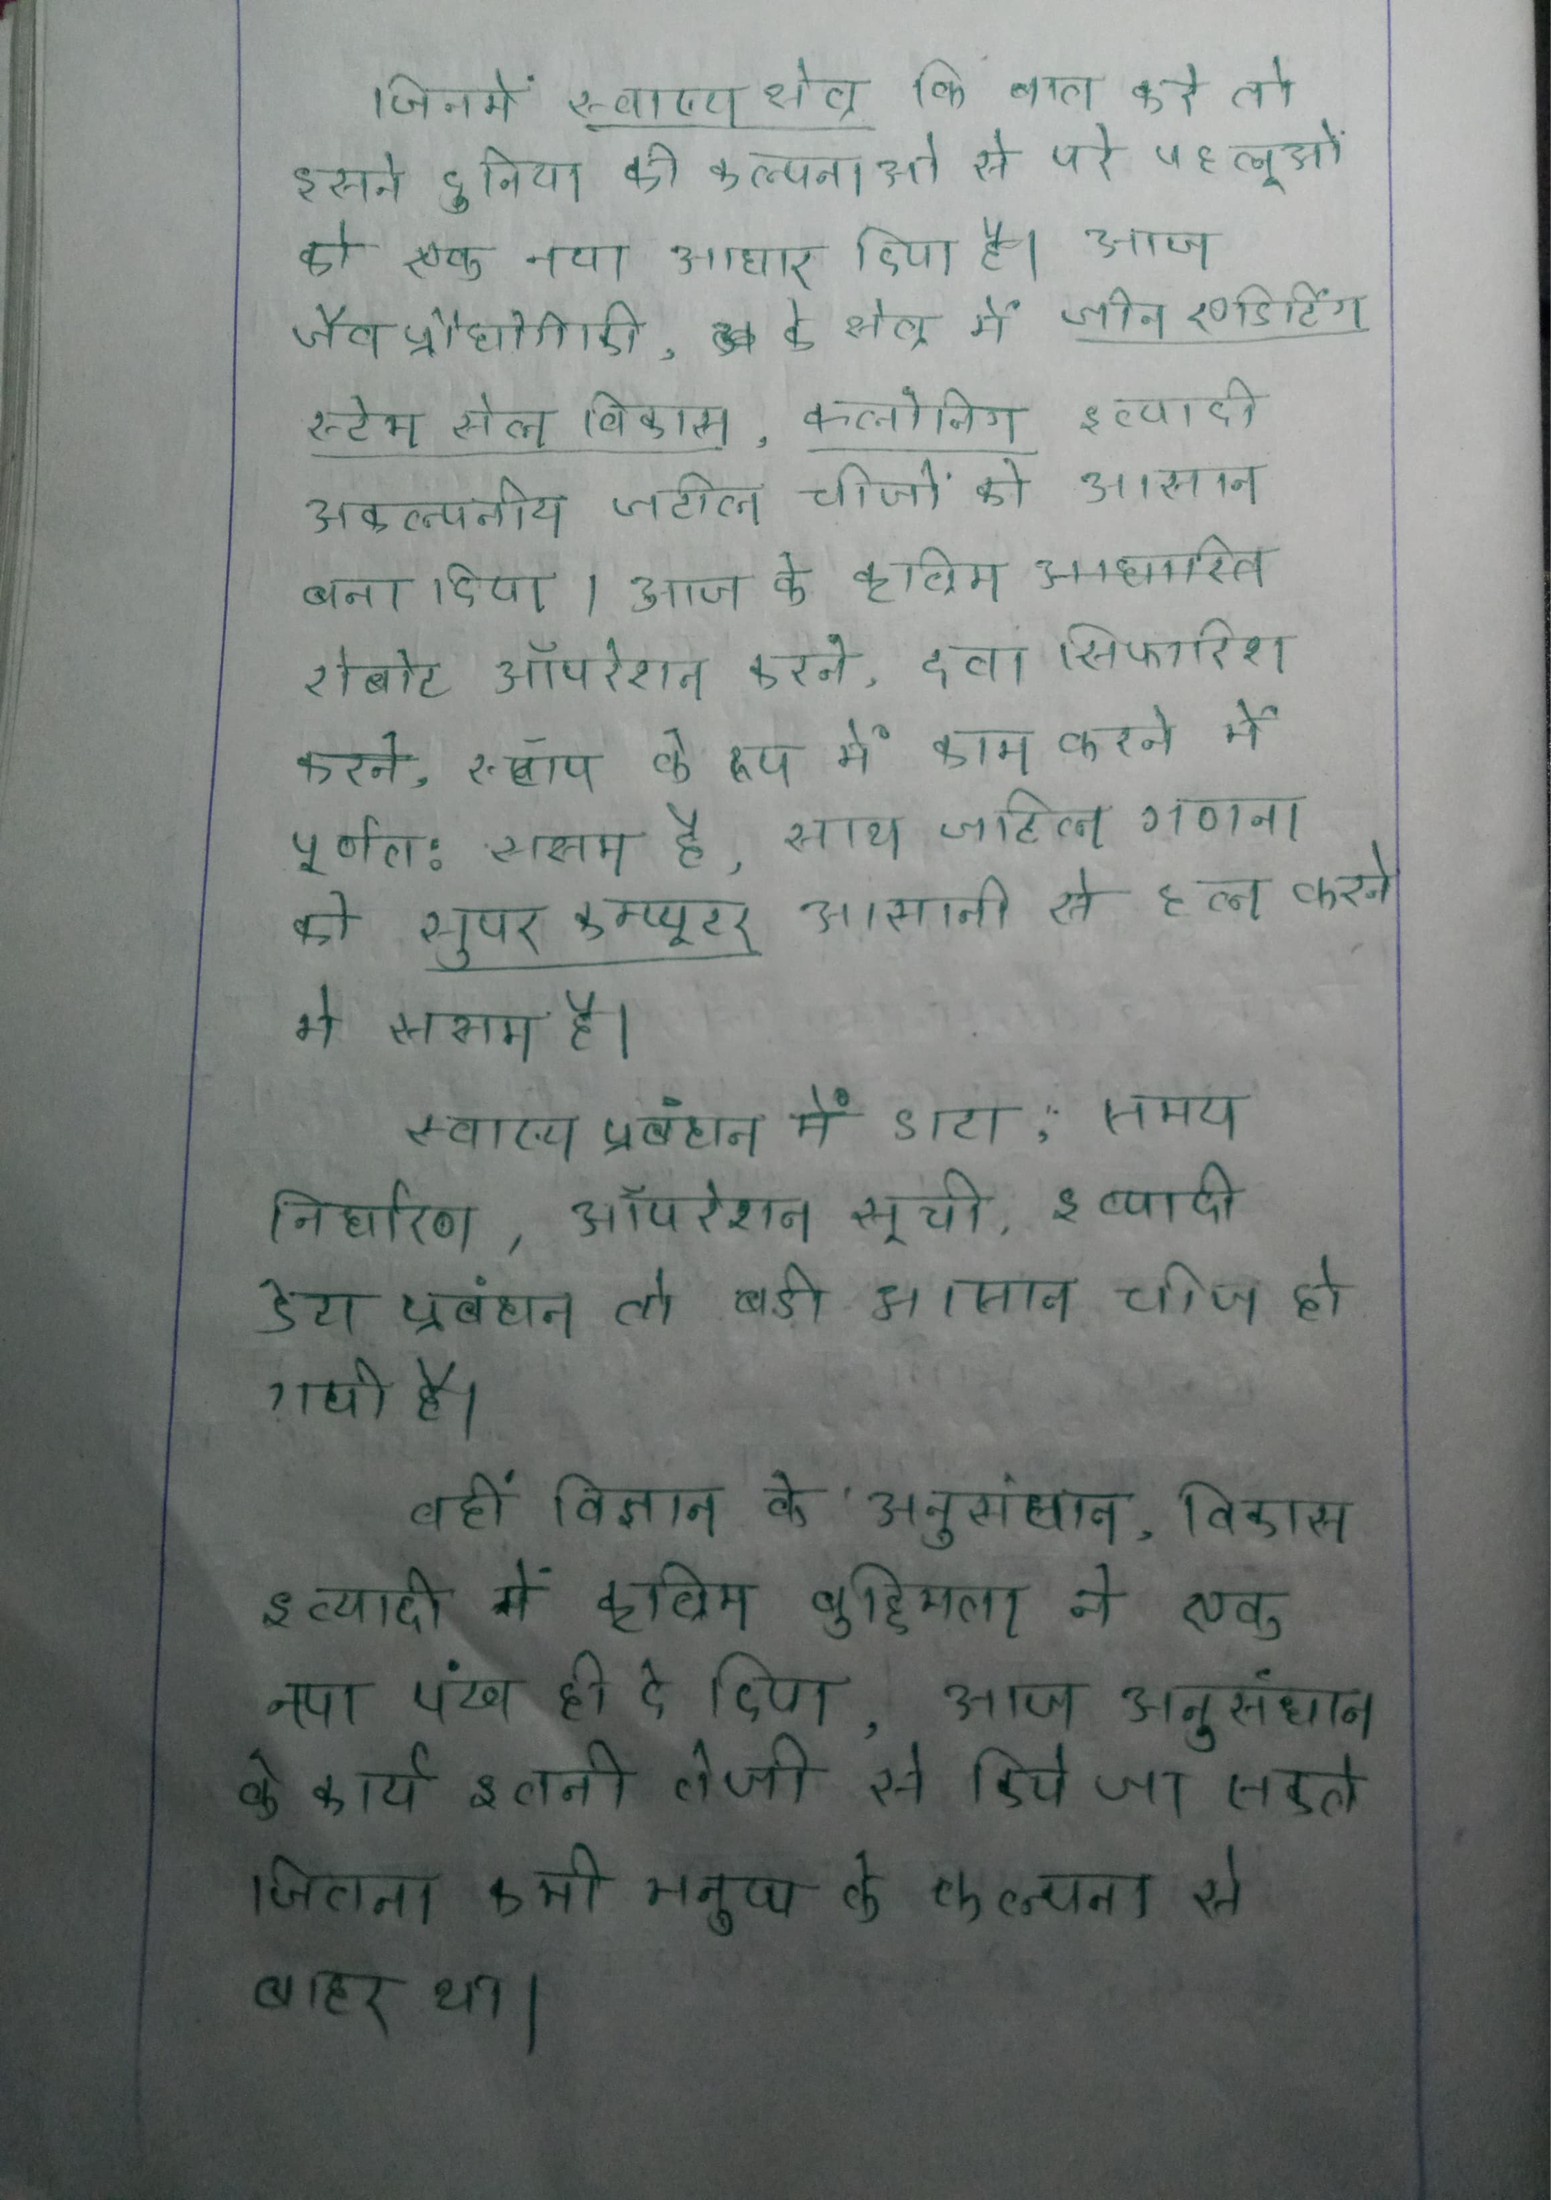 जिनमें स्वास्थ्य क्षेत्र कि बात करे तो
इसने दुनिया की कल्पनाओ से परे पहलूओं
को एक नया आधार दिया है। आज
जैव प्रौद्योगिकी, के क्षेत्र में जीन एडिटिंग
स्टेम सेल विकास, कलोनिग इत्यादी
अकल्पनीय जटील चीजों को आसान
बना दिया। आज के कृत्रिम आधारित
रोबोट ऑपरेशन करने, दवा सिफारिश
करने, के रूप में काम करने में
पूर्णतः सक्षम है, साथ जटिल गणना
को सुपर कम्प्यूटर आसानी से हल करने
मे सक्षम है।
स्वास्थ्य प्रबंधन में डाटा, समय
निर्धारण, ऑपरेशन सूची, इत्यादी
डेटा प्रबंधन तो बडी आसान चीज हो
गयी है।
वहीं विज्ञान के अनुसंधान, विकास
इत्यादी में कृत्रिम बुद्धिमता ने एक
नया पंख ही दे दिया, आज अनुसंधान
के कार्य इतनी तेजी से किये जा सकते
जितना कभी मनुष्य के कल्पना से
बाहर था।